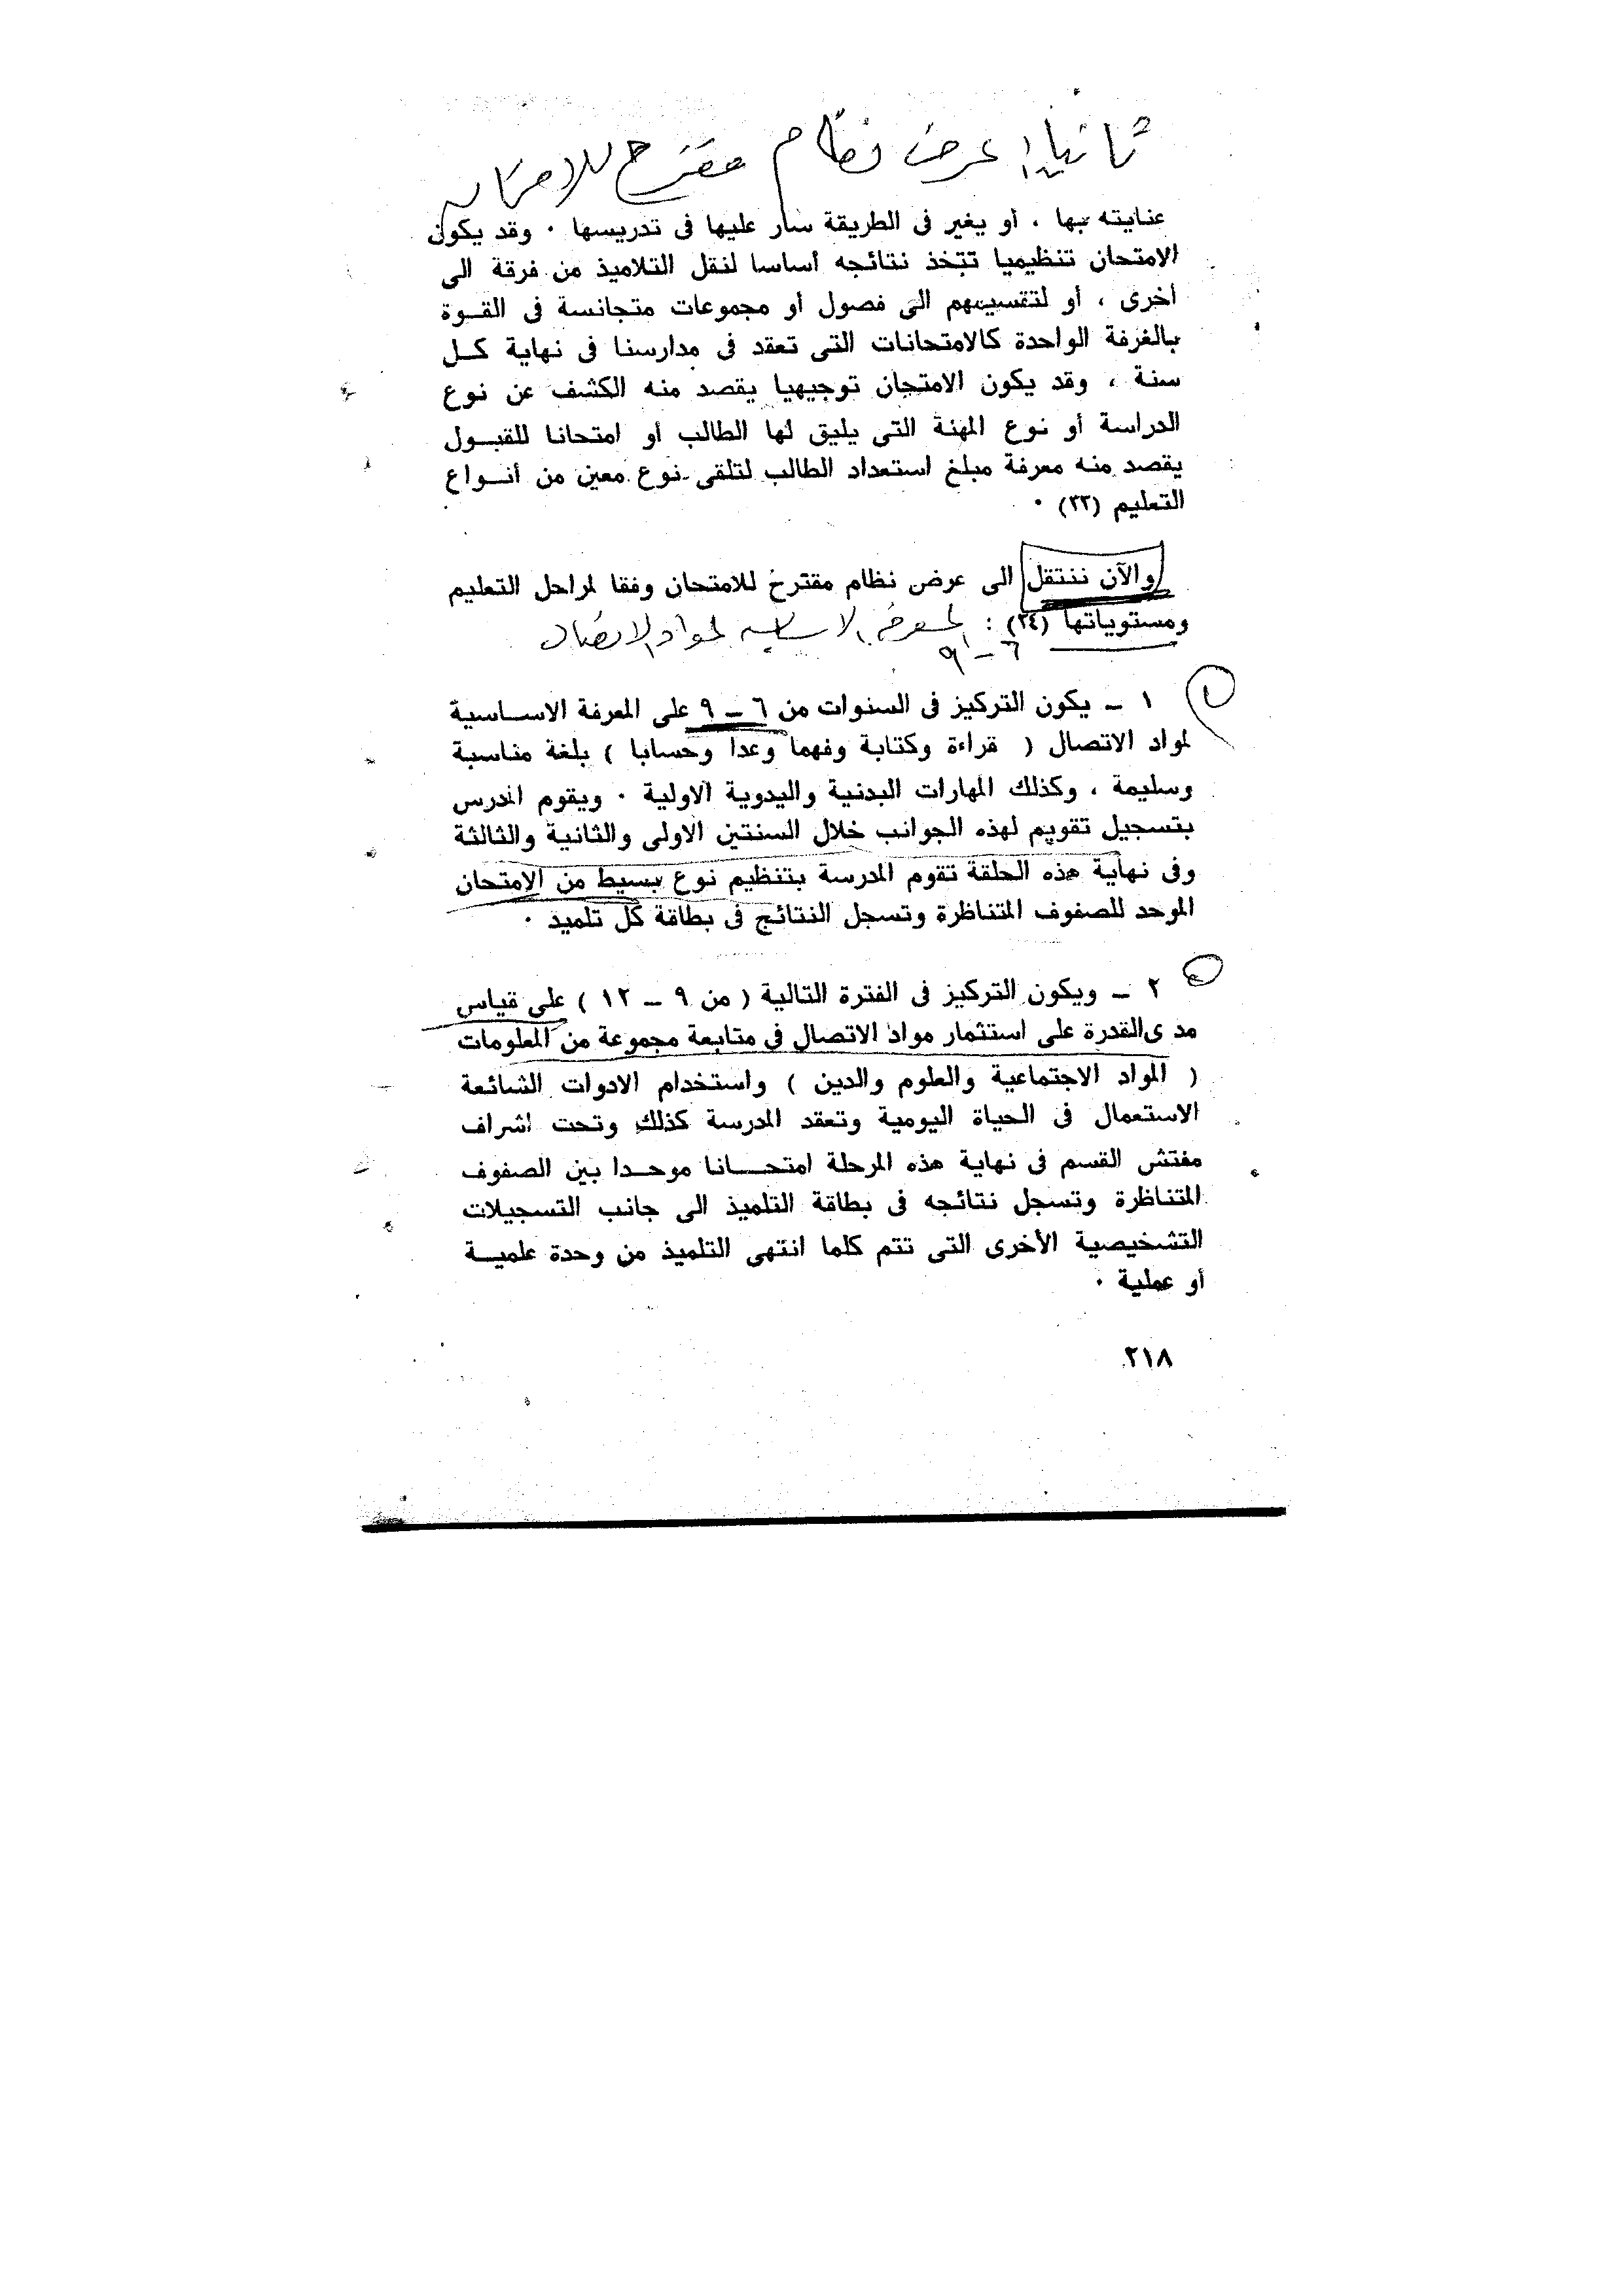 ثانيا: عرض نظام مقترح للامتحان
عنايته بها ، أو يغير فى الطريقة سار عليها فى تدريسها . وقد يكون
الامتحان تنظيميا تتخذ نتائجه أساسا لنقل التلاميذ من فرقة الى
أخرى ، أو لتقسيمهم الى فصول أو مجموعات متجانسة فى القـوة
بالغرفة الواحدة كالامتحانات التى تعقد فى مدارسنا فى نهاية كـل
سنة ، وقد يكون الامتحان توجيهيا يقصد منه الكشف عن نوع
الدراسة أو نوع المهنة التى يليق لها الطالب أو امتحانا للقبـول
يقصد منه معرفة مبلغ استعداد الطالب لتلقى نوع معين من أنـواع
التعليم (٣٣) .
والآن ننتقل الى عرض نظام مقترح للامتحان وفقا لمراحل التعليم
ومستوياتها (٣٤) : المعرفة الاساسيه لمواد الاتصال
٦ – ٩
١ ـ يكون التركيز فى السنوات من ٦ ـ ٩ على المعرفة الاسـاسية
لمواد الاتصال ( قراءة وكتابة وفهما وعدا وحسابا ) بلغة مناسبة
وسليمة ، وكذلك المهارات البدنية واليدوية الاولية . ويقوم المدرس
بتسجيل تقويم لهذه الجوانب خلال السنتين الاولى والثانية والثالثة
وفى نهاية هذه الحلقة تقوم المدرسة بتنظيم نوع بسيط من الامتحان
الموحد للصفوف المتناظرة وتسجل النتائج فى بطاقة كل تلميذ .
٢ ـ ويكون التركيز فى الفترة التالية ( من ٩ ـ ١٢ ) على قياس
مدى القدرة على استثمار مواد الاتصال فى متابعة مجموعة من المعلومات
( المواد الاجتماعية والعلوم والدين ) واستخدام الادوات الشائعة
الاستعمال فى الحياة اليومية وتعقد المدرسة كذلك وتحت اشراف
مفتش القسم فى نهاية هذه المرحلة امتحـانا موحـدا بين الصفوف
المتناظرة وتسجل نتائجه فى بطاقة التلميذ الى جانب التسجيلات
التشخيصية الأخرى التى تتم كلما انتهى التلميذ من وحدة علميـة
أو عملية .
٢١٨